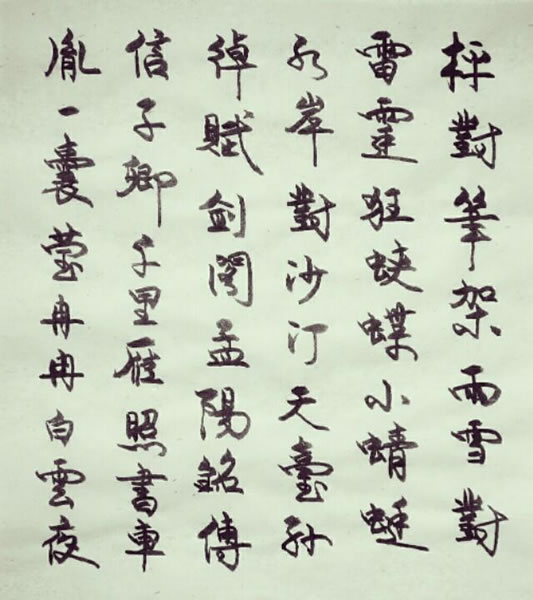 枰對筆架雨雪對
雷霆狂蛱蝶小蜻蜓
水岸對沙汀天臺孙
綽賦劍閣孟陽銘傳
信子卿千里雁照書車
胤一囊萤冉冉白雲夜